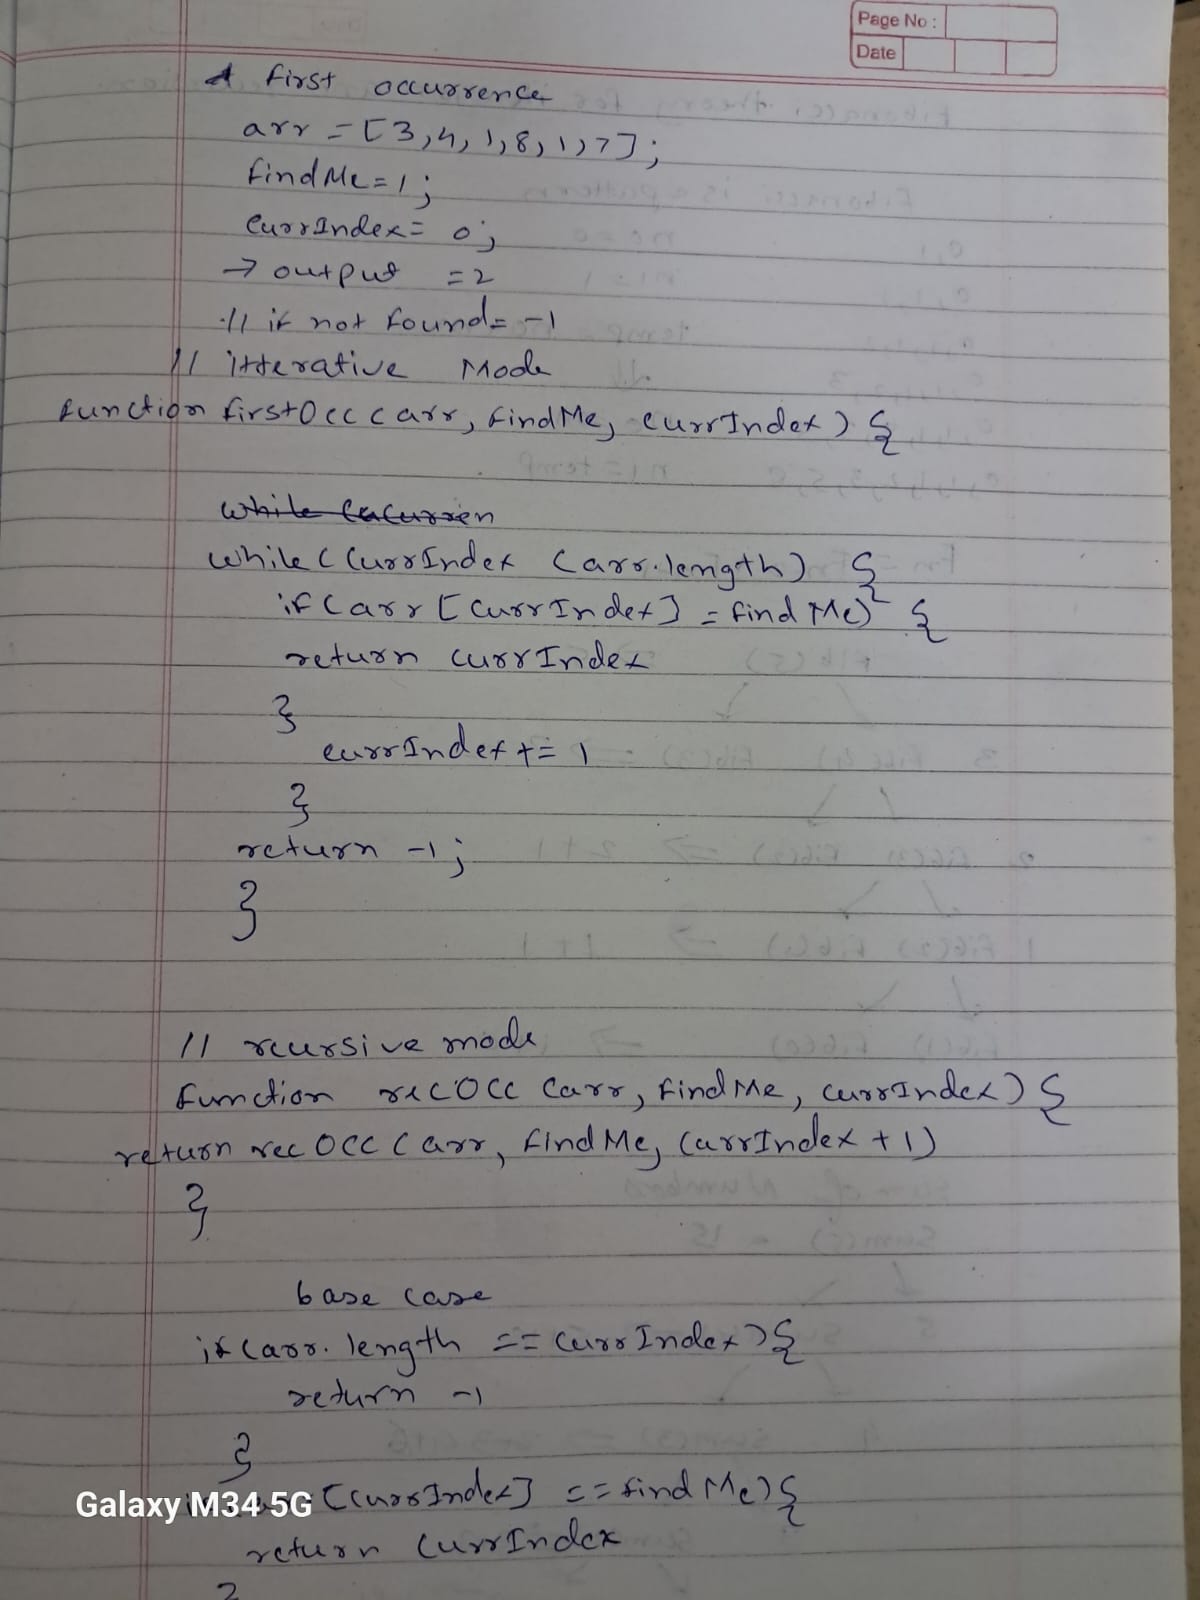 Page No :
Date
first occurrence
arr = [3,4,1,8,1,7];
findMe=1;
CurrIndex= 0;
→ output = 2
// if not found= -1
// itterative Mode
function firstOcc (arr, findMe, currIndex) {
while
while ( CurrIndex < arr.length) {
if (arr [CurrIndex] = findMe) {
return currIndex
}
currIndex += 1
}
return -1;
}
// rcursive mode
function recOcc (arr, findMe, currIndex) {
return rec Occ (arr, findMe, CurrIndex + 1)
}
base case
if (arr. length == CurrIndex) {
return -1
}
[CurrIndex] == findMe) {
return CurrIndex
}
Galaxy M34 5G